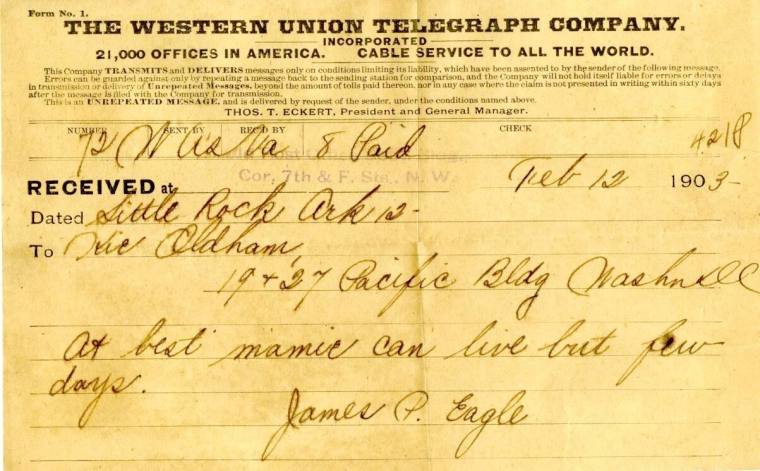 Form No. 1.
THE WESTERN UNION TELEGRAPH COMPANY.
INCORPORATED
21,000 OFFICES IN AMERICA. CABLE SERVICE TO ALL THE WORLD.
This Company TRANSMITS and DELIVERS messages only on conditions limiting its liability, which have been assented to by the sender of the following message.
Errors can be guarded against only by repeating a message back to the sending station for comparison, and the Company will not hold itself liable for errors or delays
in transmission or delivery of Unrepeated Messages, beyond the amount of tolls paid thereon, nor in any case where the claim is not presented in writing within sixty days
after the message is filed with the Company for transmission.
This is an UNREPEATED MESSAGE, and is delivered by request of the sender, under the conditions named above.
THOS. T. ECKERT, President and General Manager.
NUMBER SENT BY REC'D BY CHECK
72 Va 8 Paid 421P
Cor. 7th & F. Sts., N. W.
RECEIVED at Feb 12 1903
Dated Little Rock Ark 12-
To Kie Oldham,
19 + 27 Pacific Bldg Washn DC
At best mamie can live but few
days.
James P. Eagle